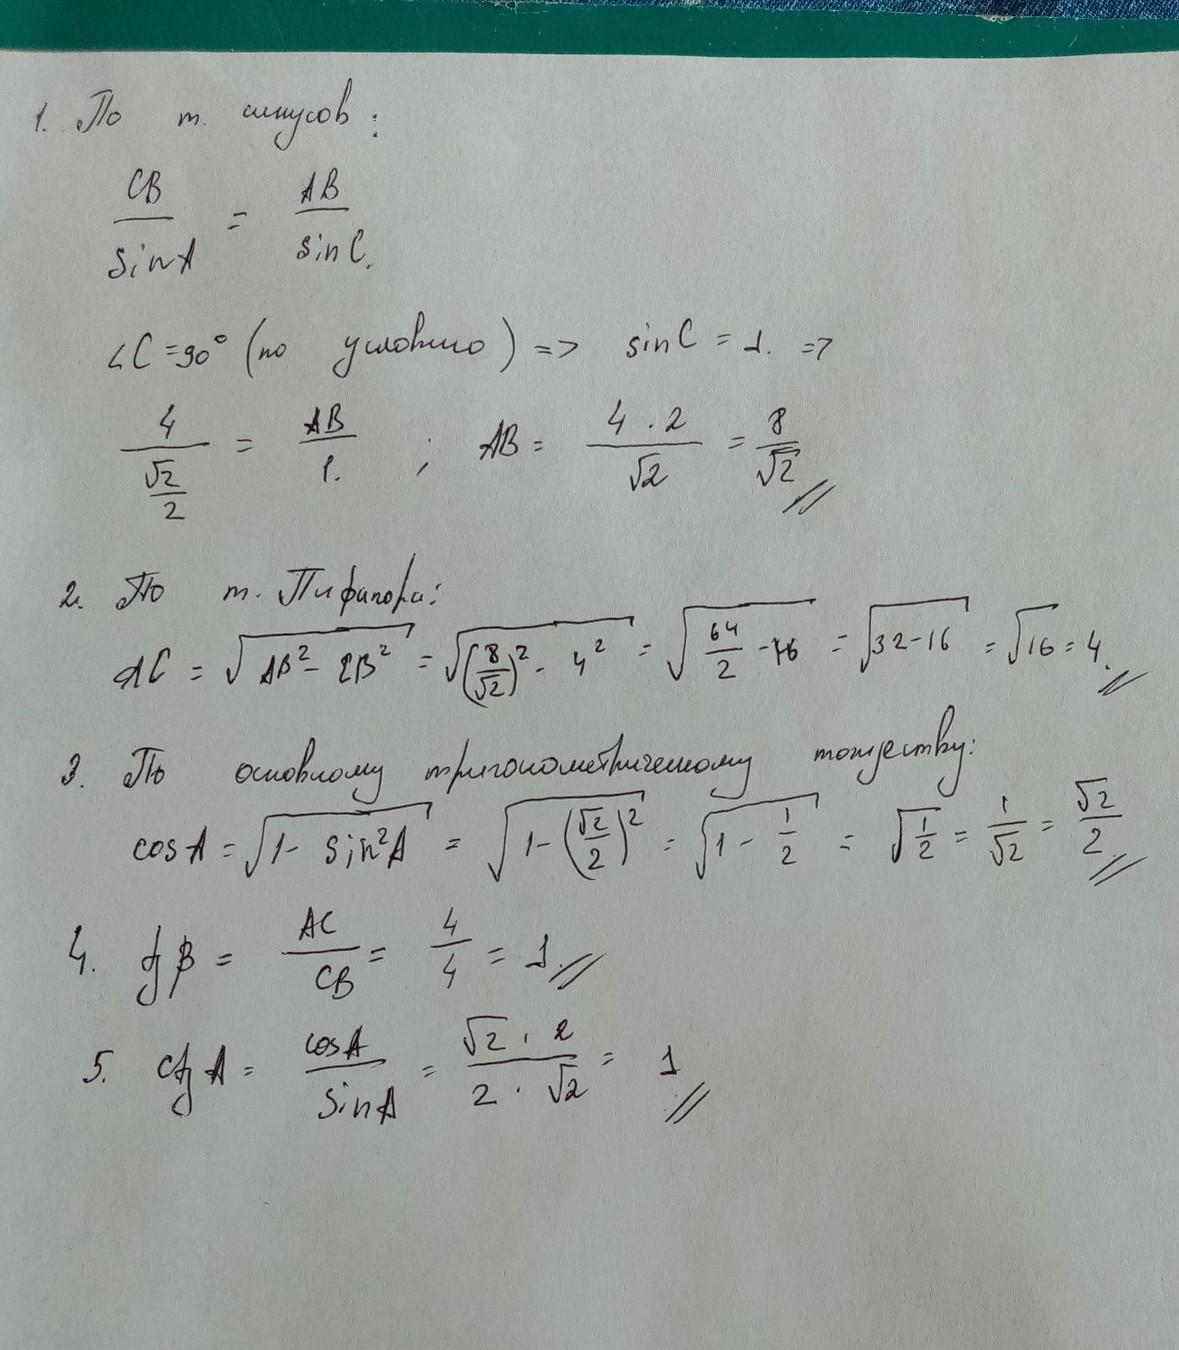 1. По т. синусов:
CB/sinA = AB/sinC.
∠C=90° (по условию) => sinC = 1. =>
4/(√2/2) = AB/1. ; AB = 4·2/√2 = 8/√2
2. По т. Пифагора:
AC = √(AB² - CB²) = √((8/√2)² - 4²) = √(64/2 - 16) = √(32-16) = √16 = 4.
3. По основному тригонометрическому тождеству:
cosA = √(1 - sin²A) = √(1-(√2/2)²) = √(1 - 1/2) = √(1/2) = 1/√2 = √2/2
4. tg B = AC/CB = 4/4 = 1.
5. ctg A = cosA/sinA = √2·2/2·√2 = 1